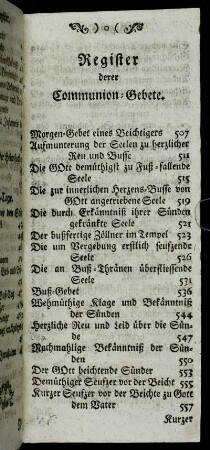 )o(
Register
derer
Communion-Gebete.
Morgen-Gebet eines Beichtigers 507
Aufmunterung der Seelen zu herzlicher
Reu und Busse 511
Die GOtt demüthigst zu Fuß-fallende
Seele 515
Die zur innerlichen Herzens-Busse von
GOtt angetriebene Seele 519
Die durch Erkänntniß ihrer Sünden
gekränkte Seele 521
Der bußfertige Zöllner im Tempel 523
Die um Vergebung erstlich seufzende
Seele 526
Die an Buß-Thränen überfliessende
Seele 531
Buß-Gebet 536
Wehmüthige Klage und Bekänntniß
der Sünden 544
Herzliche Reu und Leid über die Sün-
de 547
Nachmahlige Bekänntniß der Sün-
den 550
Der GOtt beichtende Sünder 553
Demüthiger Seufzer vor der Beicht 555
Kurzer Seufzer vor der Beichte zu Gott
dem Vater 557
Kurzer